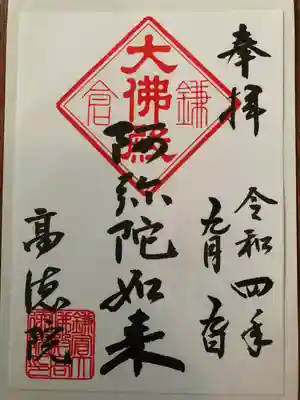 奉拝
令和四年
九月
大佛殿
鎌倉
阿弥陀如来
高徳院